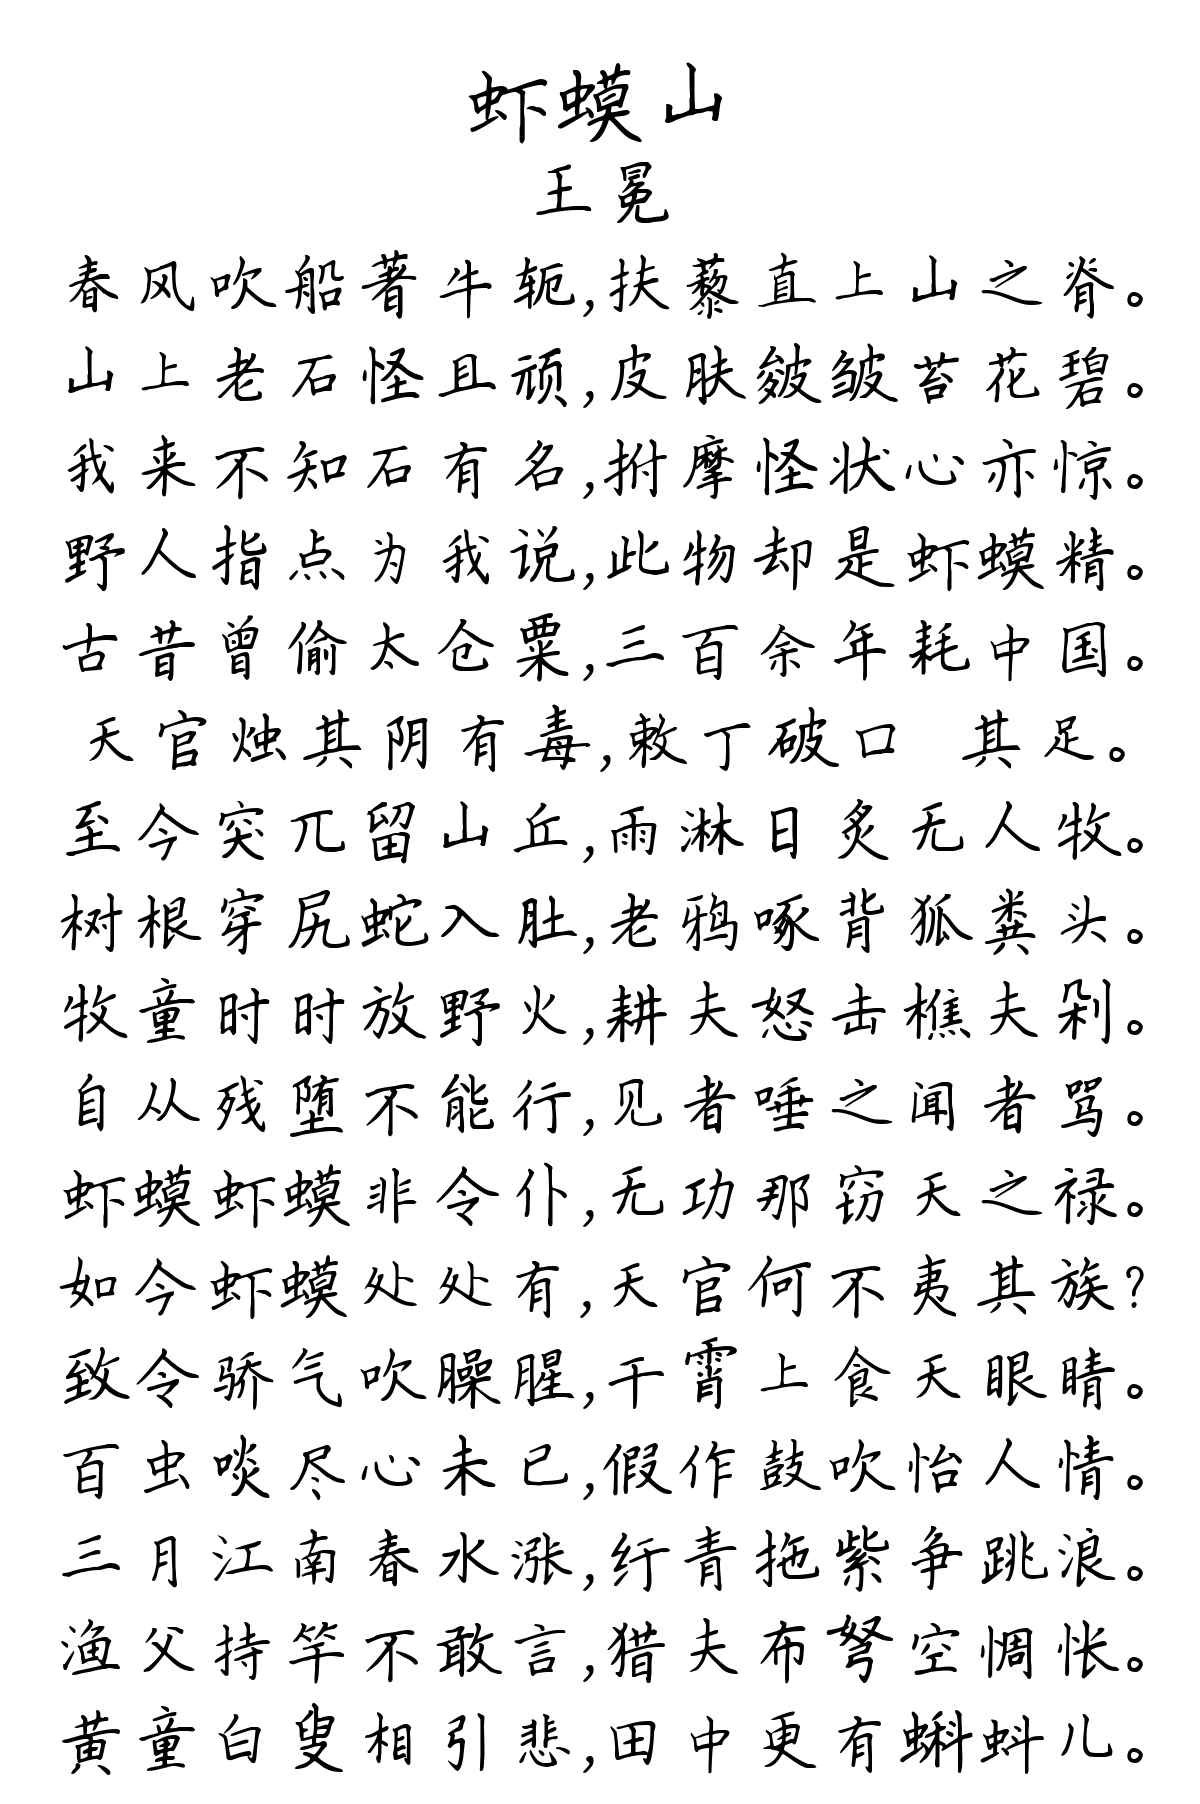 虾蟆山
王冕
春风吹船著牛轭,扶藜直上山之脊。
山上老石怪且顽,皮肤皴皱苔花碧。
我来不知石有名,拊摩怪状心亦惊。
野人指点为我说,此物却是虾蟆精。
古昔曾偷太仓粟,三百余年耗中国。
天官烛其阴有毒,敕丁破口 其足。
至今突兀留山丘,雨淋日炙无人牧。
树根穿尻蛇入肚,老鸦啄背狐粪头。
牧童时时放野火,耕夫怒击樵夫剁。
自从残堕不能行,见者唾之闻者骂。
虾蟆虾蟆非令仆,无功那窃天之禄。
如今虾蟆处处有,天官何不夷其族?
致令骄气吹臊腥,干霄上食天眼睛。
百虫啖尽心未已,假作鼓吹怡人情。
三月江南春水涨,纡青拖紫争跳浪。
渔父持竿不敢言,猎夫布弩空惆怅。
黄童白叟相引悲,田中更有蝌蚪儿。